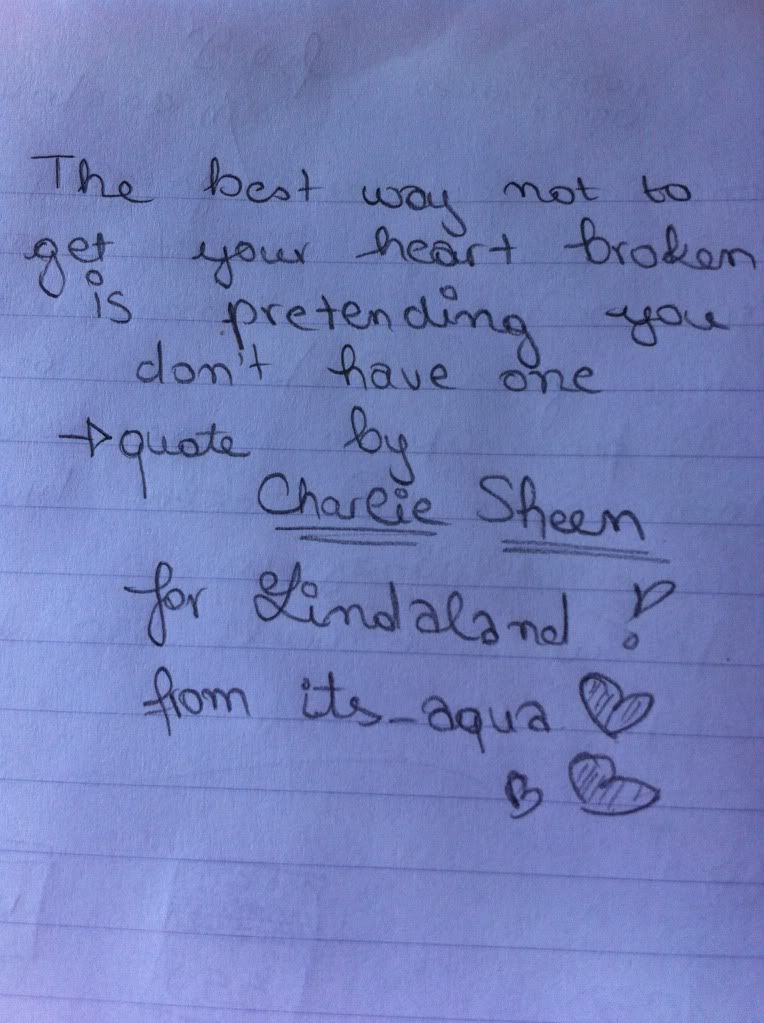 The best way not to
get your heart broken
is pretending you
don't have one
→ quote by
Charlie Sheen
for Lindaland !
from its_aqua ♡
♡ ♡